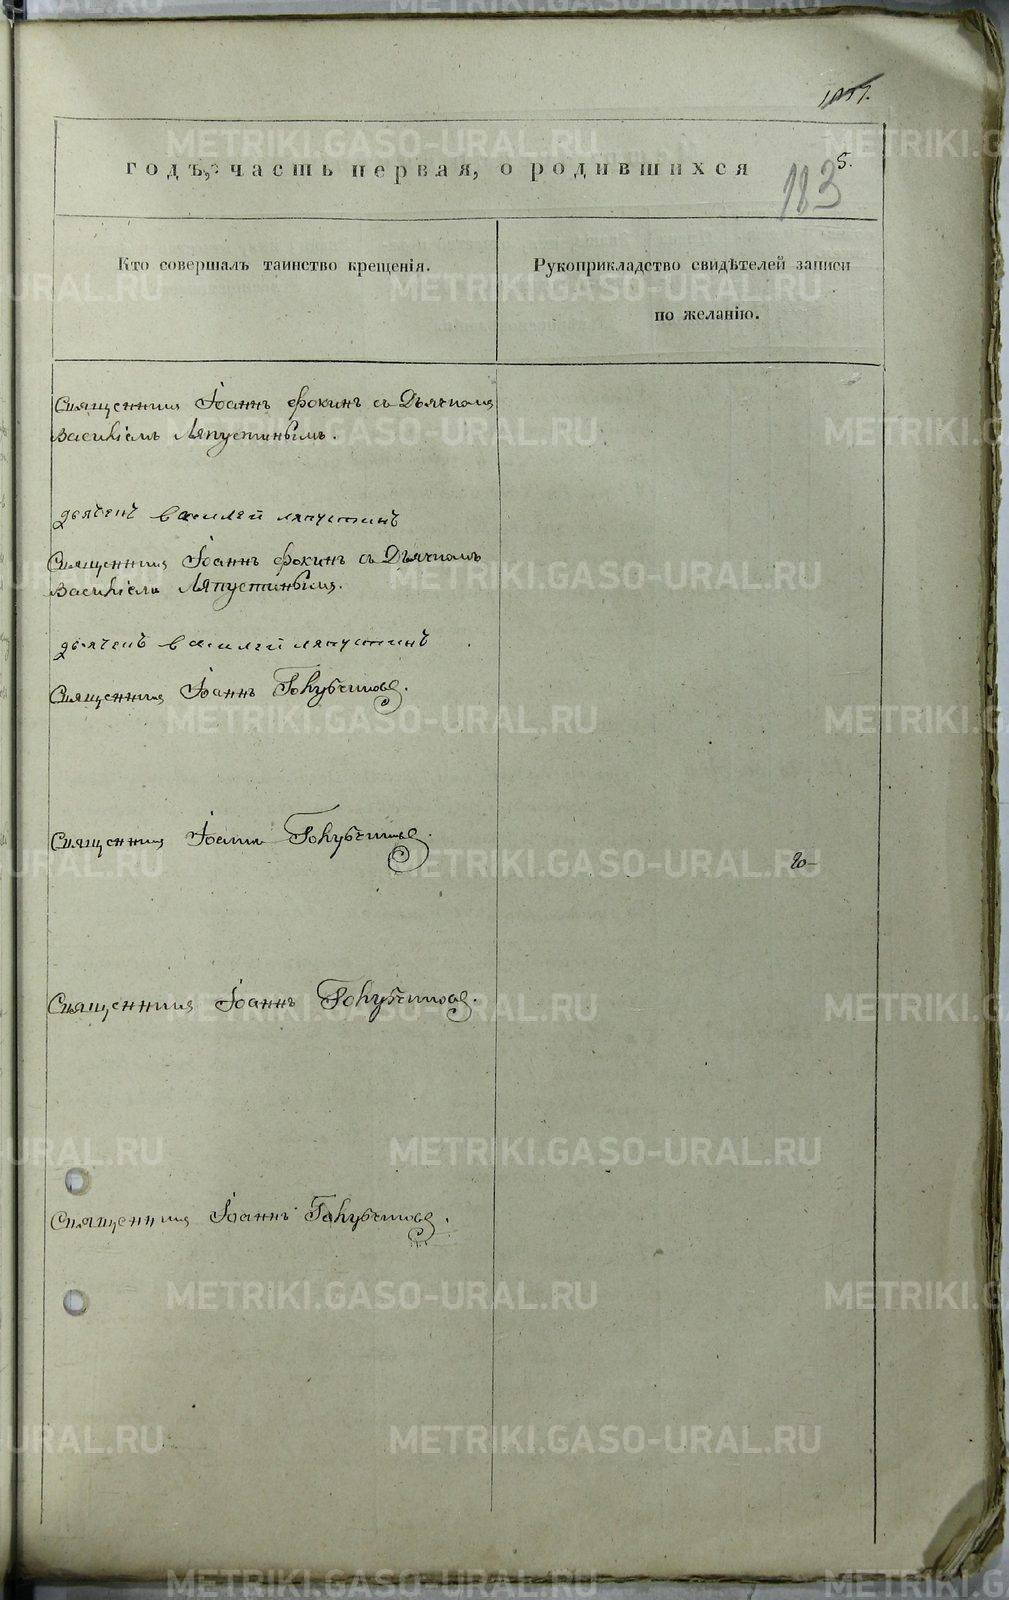 годъ, часть первая, о родившихся
5.
183
Кто совершалъ таинство крещенія.
Рукоприкладство свидѣтелей записи
по желанію.
Священникъ Іоаннъ Фокинъ съ Дьячкомъ
Василіемъ Ляпустинымъ.
дьячекъ василей ляпустинъ
Священникъ Іоаннъ Фокинъ съ Дьячкомъ
Василіемъ Ляпустинымъ.
дьячекъ василей ляпустинъ
Священникъ Іоаннъ Голубчиковъ.
Священникъ Іоаннъ Голубчиковъ.
Священникъ Іоаннъ Голубчиковъ.
Священникъ Іоаннъ Голубчиковъ.
METRIKI.GASO-URAL.RU